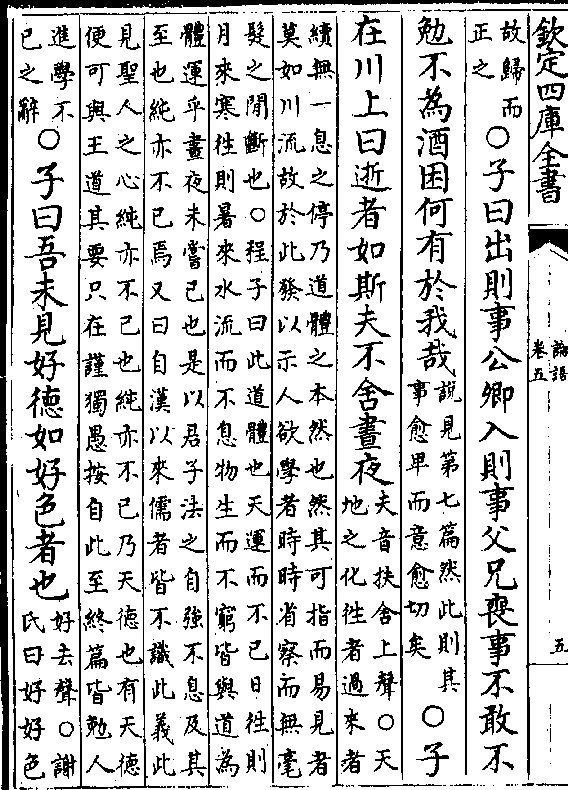 欽定四庫全書
論語
卷五
五
故歸而
正之
○子曰出則事公卿入則事父兄喪事不敢不
勉不為酒困何有於我哉
說見第七篇然此則其
事愈卑而意愈切矣
○子
在川上曰逝者如斯夫不舍晝夜
夫音扶舍上聲○天
地之化徃者過來者
續無一息之停乃道體之本然也然其可指而易見者
莫如川流故於此發以示人欲學者時時省察而無毫
髮之間斷也○程子曰此道體也天運而不已日徃則
月來寒徃則暑來水流而不息物生而不窮皆與道為
體運乎晝夜未嘗已也是以君子法之自強不息及其
至也純亦不已焉又曰自漢以來儒者皆不識此義此
見聖人之心純亦不已也純亦不已乃天德也有天德
便可與王道其要只在謹獨愚按自此至終篇皆勉人
進學不
已之辭
○子曰吾未見好德如好色者也
好去聲○謝
氏曰好好色